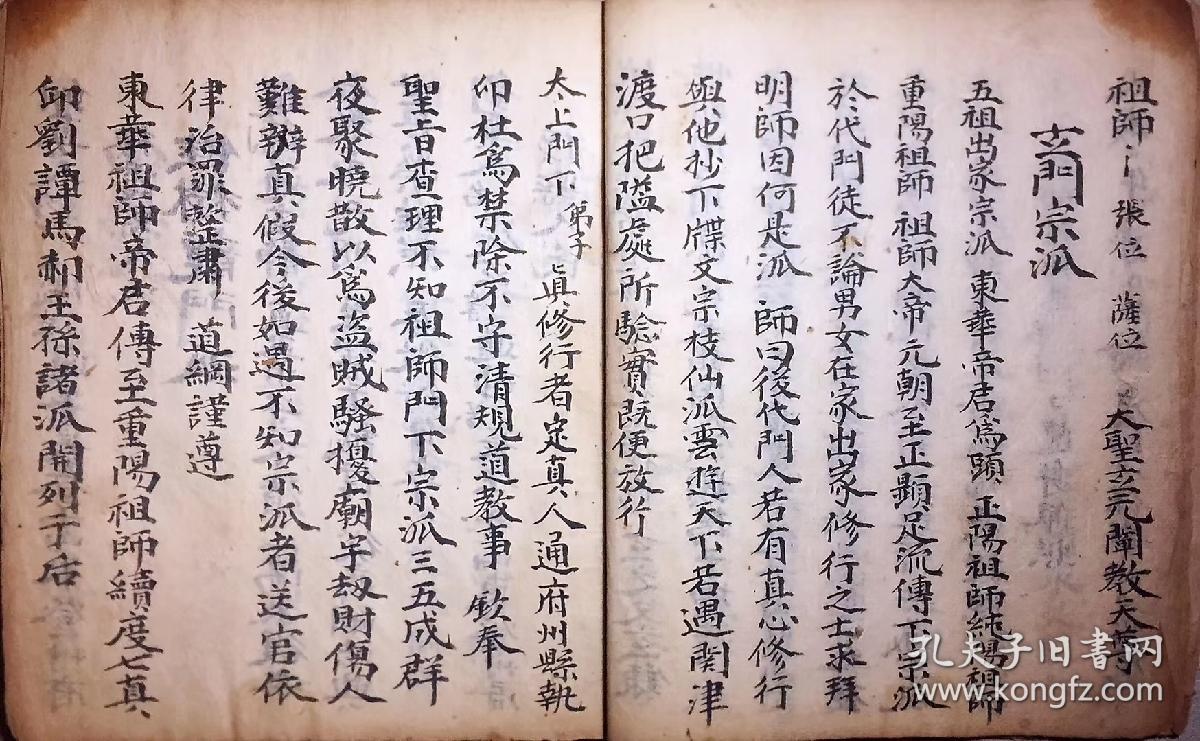 祖師 張位 薩位 大聖玄元闡教天尊
玄門宗派
五祖出家宗派 東華帝君爲頭 正陽祖師純陽祖師
重陽祖師 祖師大帝元朝至正顯足流傳下宗派
於代門徒不論男女在家出家修行之士求拜
明師因何是派 師曰後代門人若有真心修行
與他抄下牒文宗枝仙派雲遊天下若遇関津
渡口把隘處所驗實既便放行
太上門下弟子真修行者定真人通府州縣執
印杜爲禁除不守清規道教事 欽奉
聖旨查理不知祖師門下宗派三五成群
夜聚曉散以爲盜賊騷擾廟宇刼財傷人
難辨真假今後如遇不知宗派者送官依
律治罪整肅 道綱謹遵
東華祖師帝君傳至重陽祖師續度七真
邱劉譚馬郝王孫諸派開列于后
孔夫子旧书网
www.kongfz.com